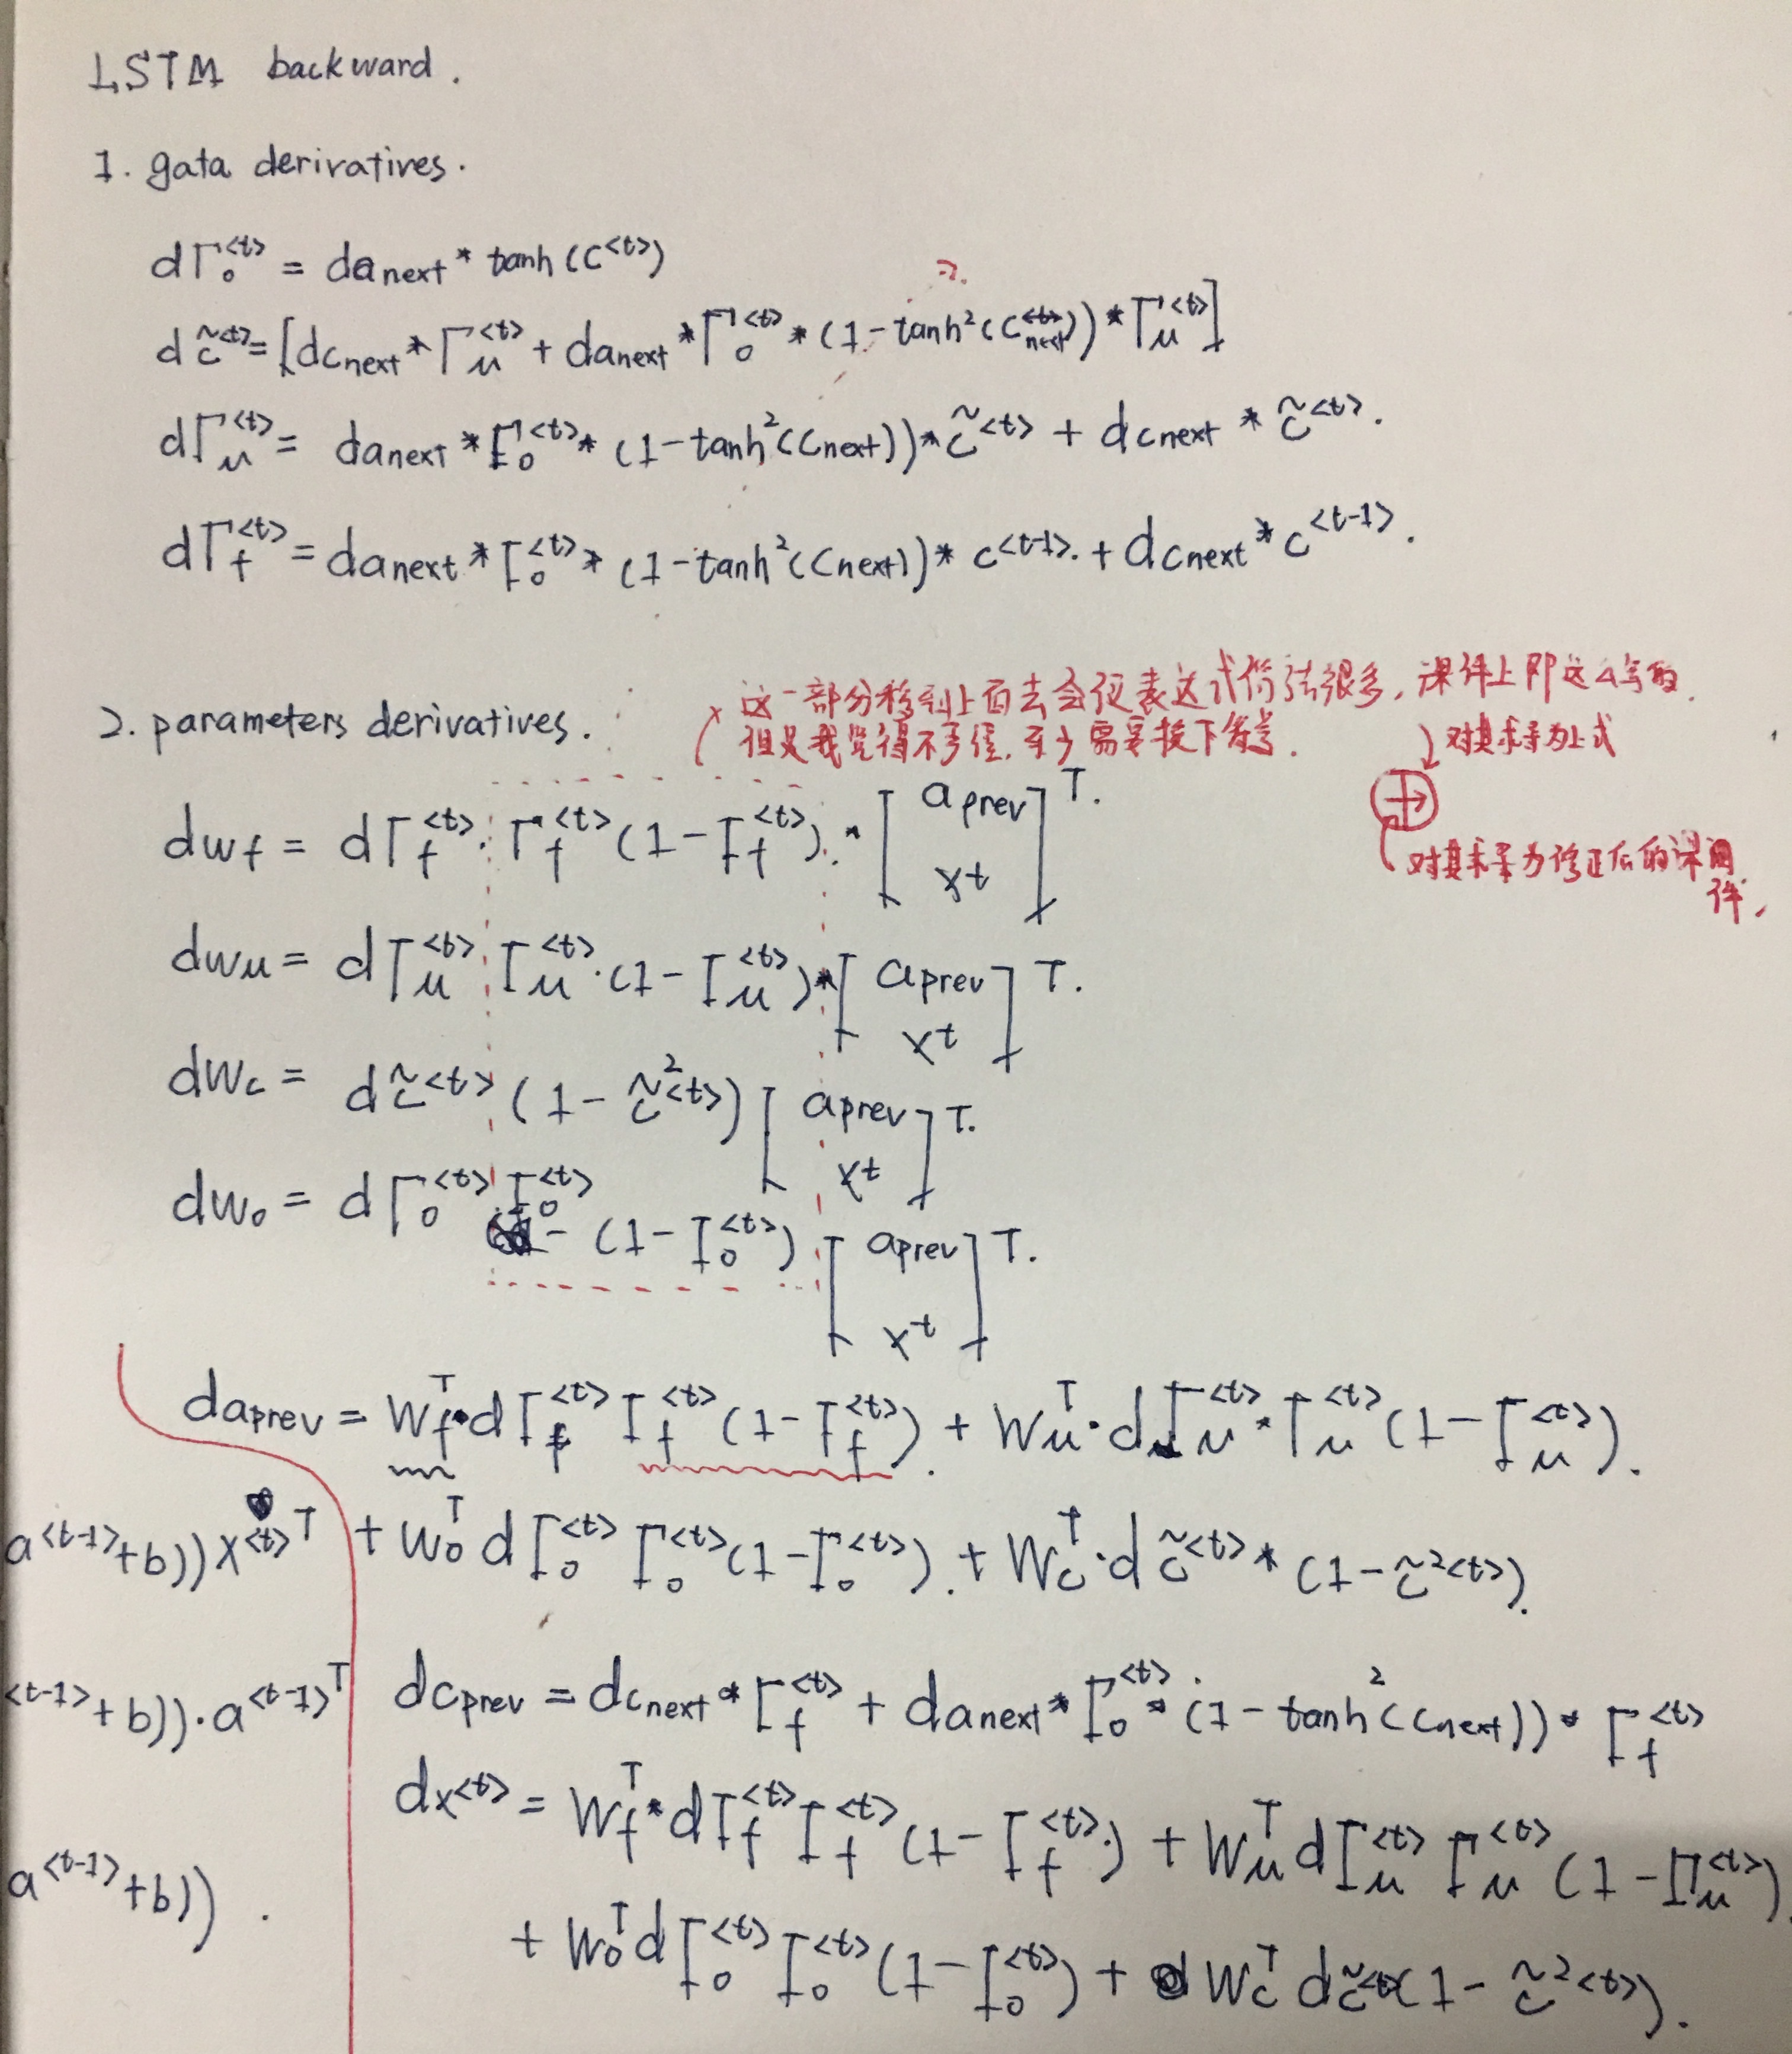 LSTM backward.
1. gata derivatives.
dΓₒ^<t> = da_next * tanh(c^<t>)
dc̃^<t> = [dc_next * Γ_u^<t> + da_next * Γₒ^<t> * (1-tanh²(c_next^<t>)) * Γ_u^<t>]
dΓ_u^<t> = da_next * Γₒ^<t> * (1-tanh²(c_next)) * c̃^<t> + dc_next * c̃^<t>.
dΓ_f^<t> = da_next * Γₒ^<t> * (1-tanh²(c_next)) * c^<t-1>. + dc_next * c^<t-1>.
这一部分移到上面去会使表达式简洁很多,课件上即这么写的.
2. parameters derivatives.
但是我觉得不妥,至少需要换下符号.
对其求导为上式
dw_f = dΓ_f^<t> · Γ_f^<t> (1-Γ_f^<t>). * [a_prev x^t]^T.
对其求导为修正后的课件.
dw_u = dΓ_u^<t> Γ_u^<t> · (1-Γ_u^<t>) * [a_prev x^t]^T.
dw_c = dc̃^<t> (1-c̃²^<t>) [a_prev x^t]^T.
dwₒ = dΓₒ^<t> Γₒ^<t> (1-Γₒ^<t>) [a_prev x^t]^T.
da_prev = W_f^T · dΓ_f^<t> Γ_f^<t> (1-Γ_f^<t>). + W_u^T · dΓ_u^<t> * Γ_u^<t> (1-Γ_u^<t>).
a^<t-1>+b))x^<t>T
+ Wₒ^T dΓₒ^<t> Γₒ^<t> (1-Γₒ^<t>). + W_c^T · dc̃^<t> * (1-c̃²^<t>).
<t-1>+b))·a^<t-1>T
dc_prev = dc_next * Γ_f^<t> + da_next * Γₒ^<t> * (1-tanh²(c_next)) * Γ_f^<t>
dx^<t> = W_f^T * dΓ_f^<t> Γ_f^<t> (1-Γ_f^<t>) + W_u^T dΓ_u^<t> Γ_u^<t> (1-Γ_u^<t>).
a^<t-1>+b)).
+ Wₒ^T dΓₒ^<t> Γₒ^<t> (1-Γₒ^<t>) + W_c^T dc̃^<t> (1-c̃²^<t>).